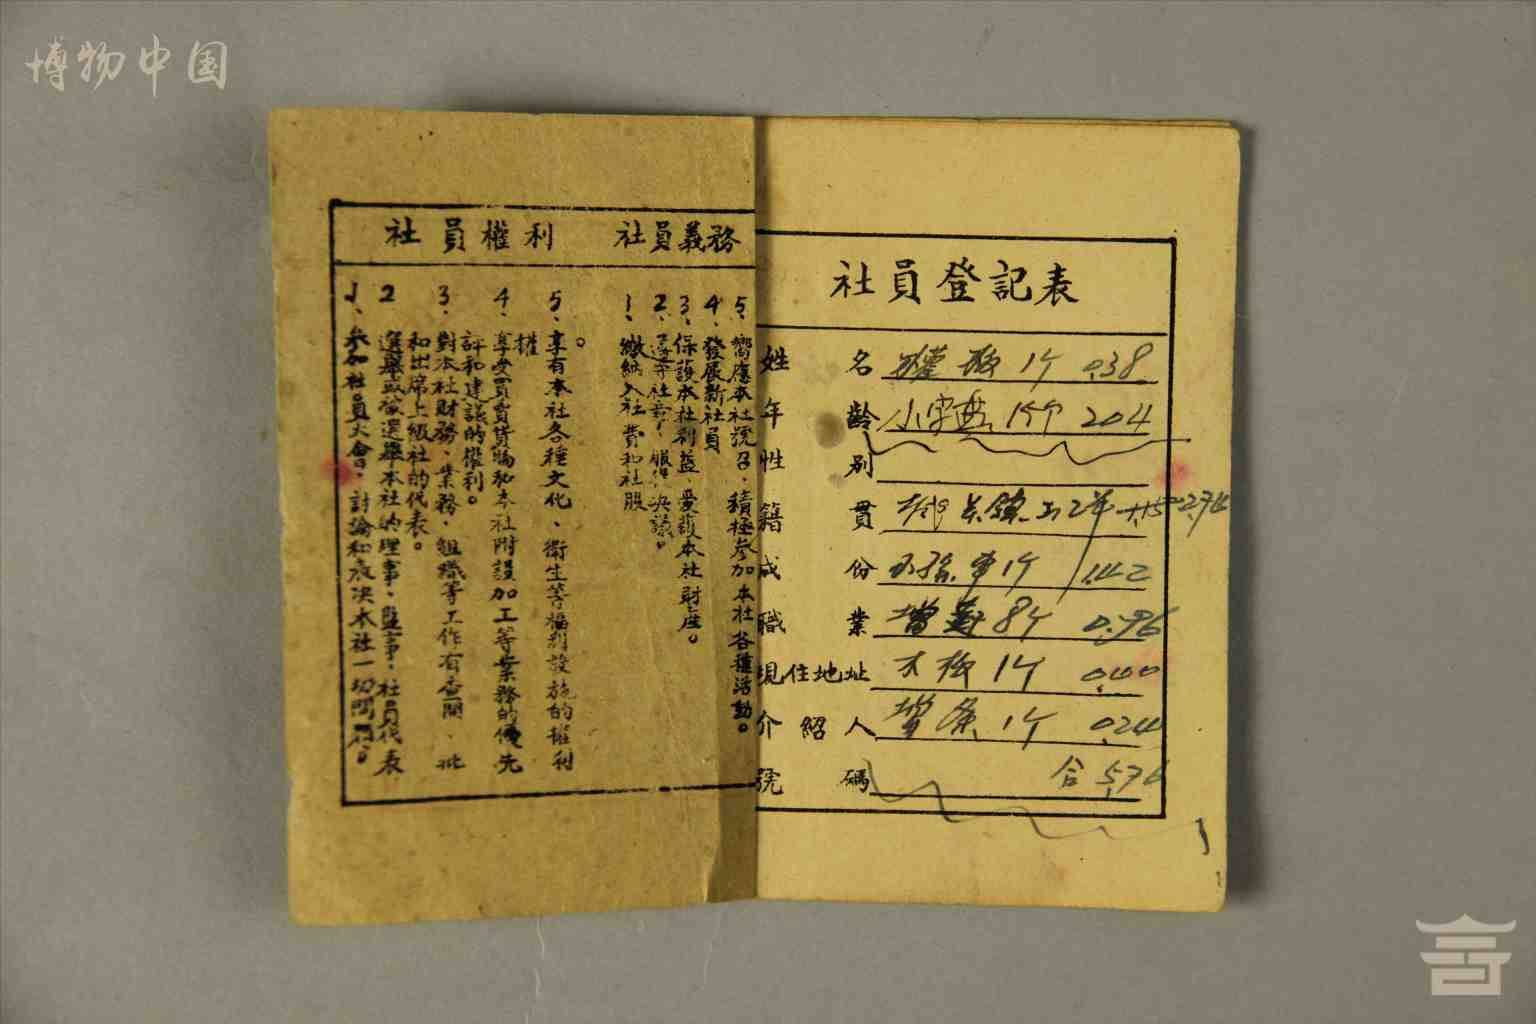 博物中国
社員權利
1、參加社員大會、討論和表决本社一切問題。
2 選舉或被選舉本社的理事、監事、社員代表
和出席上級社的代表。
3、對本社財務、業務、組織等工作有查問、批
評和建議的權利。
4、享受買賣貨物和本社附設加工等業務的優先
權
5、享有本社各種文化、衛生等福利設施的權利
。
社員義務
1、繳納入社費和社股
2、遵守社章、服從决議。
3、保護本社利益、愛護本社財產。
4、發展新社員
5、嚮應本社號召、積極參加本社各種活動。
社員登記表
姓名 1个 0.38
年齡 小字典 1个 2.04
性別
籍貫 2.76
成份 1个 1.42
職業 8个 0.96
現住地址 木板 1个 0.00
介紹人 1个 0.24
號碼 合 5.76